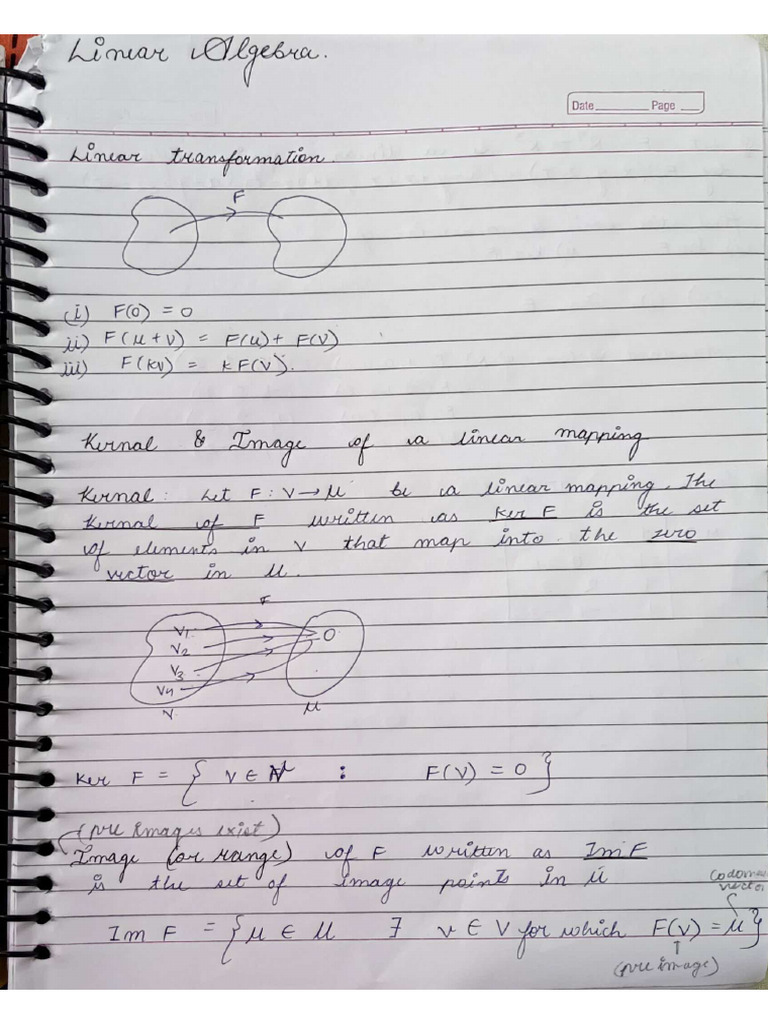 Linear Algebra.
Date Page
Linear transformation.
F
(i) F(0) = 0
ii) F(μ+v) = F(μ) + F(v)
iii) F(kv) = kF(v).
Kernal & Image of a linear mapping
Kernal: Let F: V→U be a linear mapping. The
Kernal of F written as Ker F is the set
of elements in V that map into the zero
vector in U.
F
V1
V2
V3
V4
0
V
U
Ker F = { v ∈ V : F(v) = 0 }
(pre images exist)
Image (or range) of F written as Im F
is the set of image points in U
codomain
vector
Im F = { μ ∈ U ∃ v ∈ V for which F(v) = μ }
(pre image)